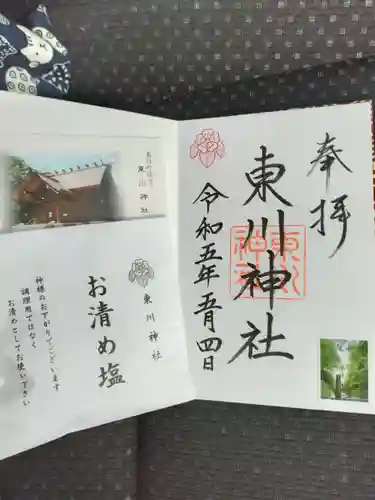 奉拝
東川神社
東川
神社
令和五年五月四日
東川神社
東川神社
お清め塩
神様のお下がりでございます
調理用ではなく
お清めとしてお使い下さい